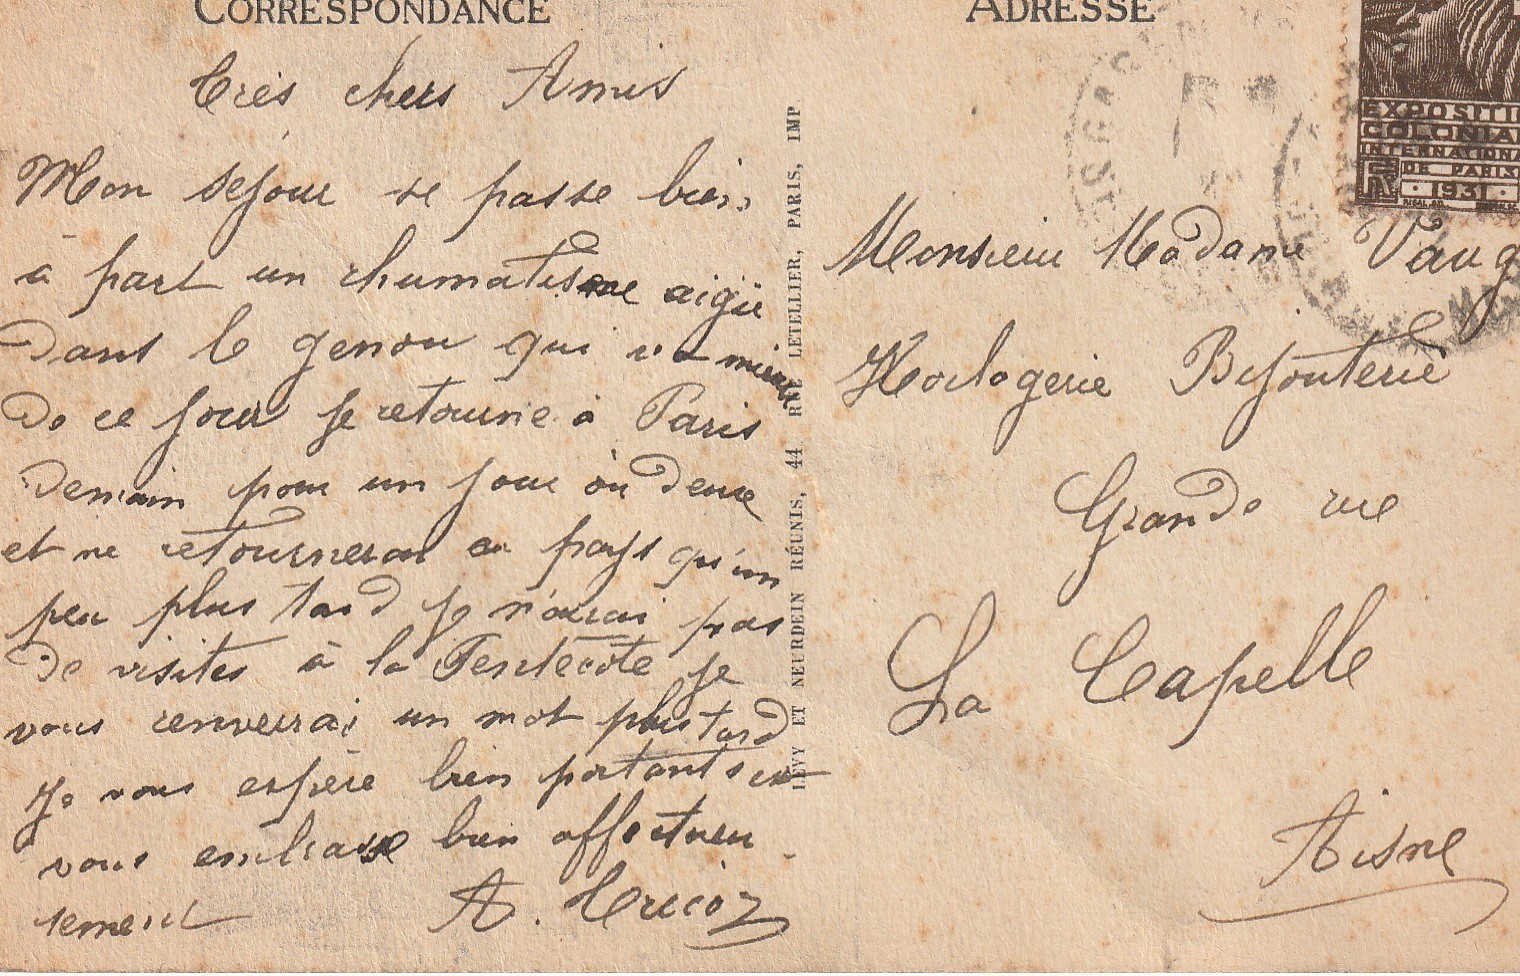 CORRESPONDANCE
Très chers Amis
Mon séjour se passe bien
à part un rhumatisme aigüe
Dans le genou qui va mieux
De ce jour je retourne à Paris
Demain pour un jour où deux
et ne retournerai au pays qu'un
peu plus tard je n'aurai pas
De visites à la Pentecôte je
vous renverrai un mot plus tard
Je vous espère bien portants et
vous embrasse bien affectueu
sement
LÉVY ET NEURDEIN RÉUNIS, 44 RUE LETELLIER, PARIS, IMP
ADRESSE
EXPOSITIO
COLONIA
INTERNATIONA
DE PARIS
1931
Monsieur Madame Vaug
Horlogerie Bijouterie
Grande rue
La Capelle
Aisne